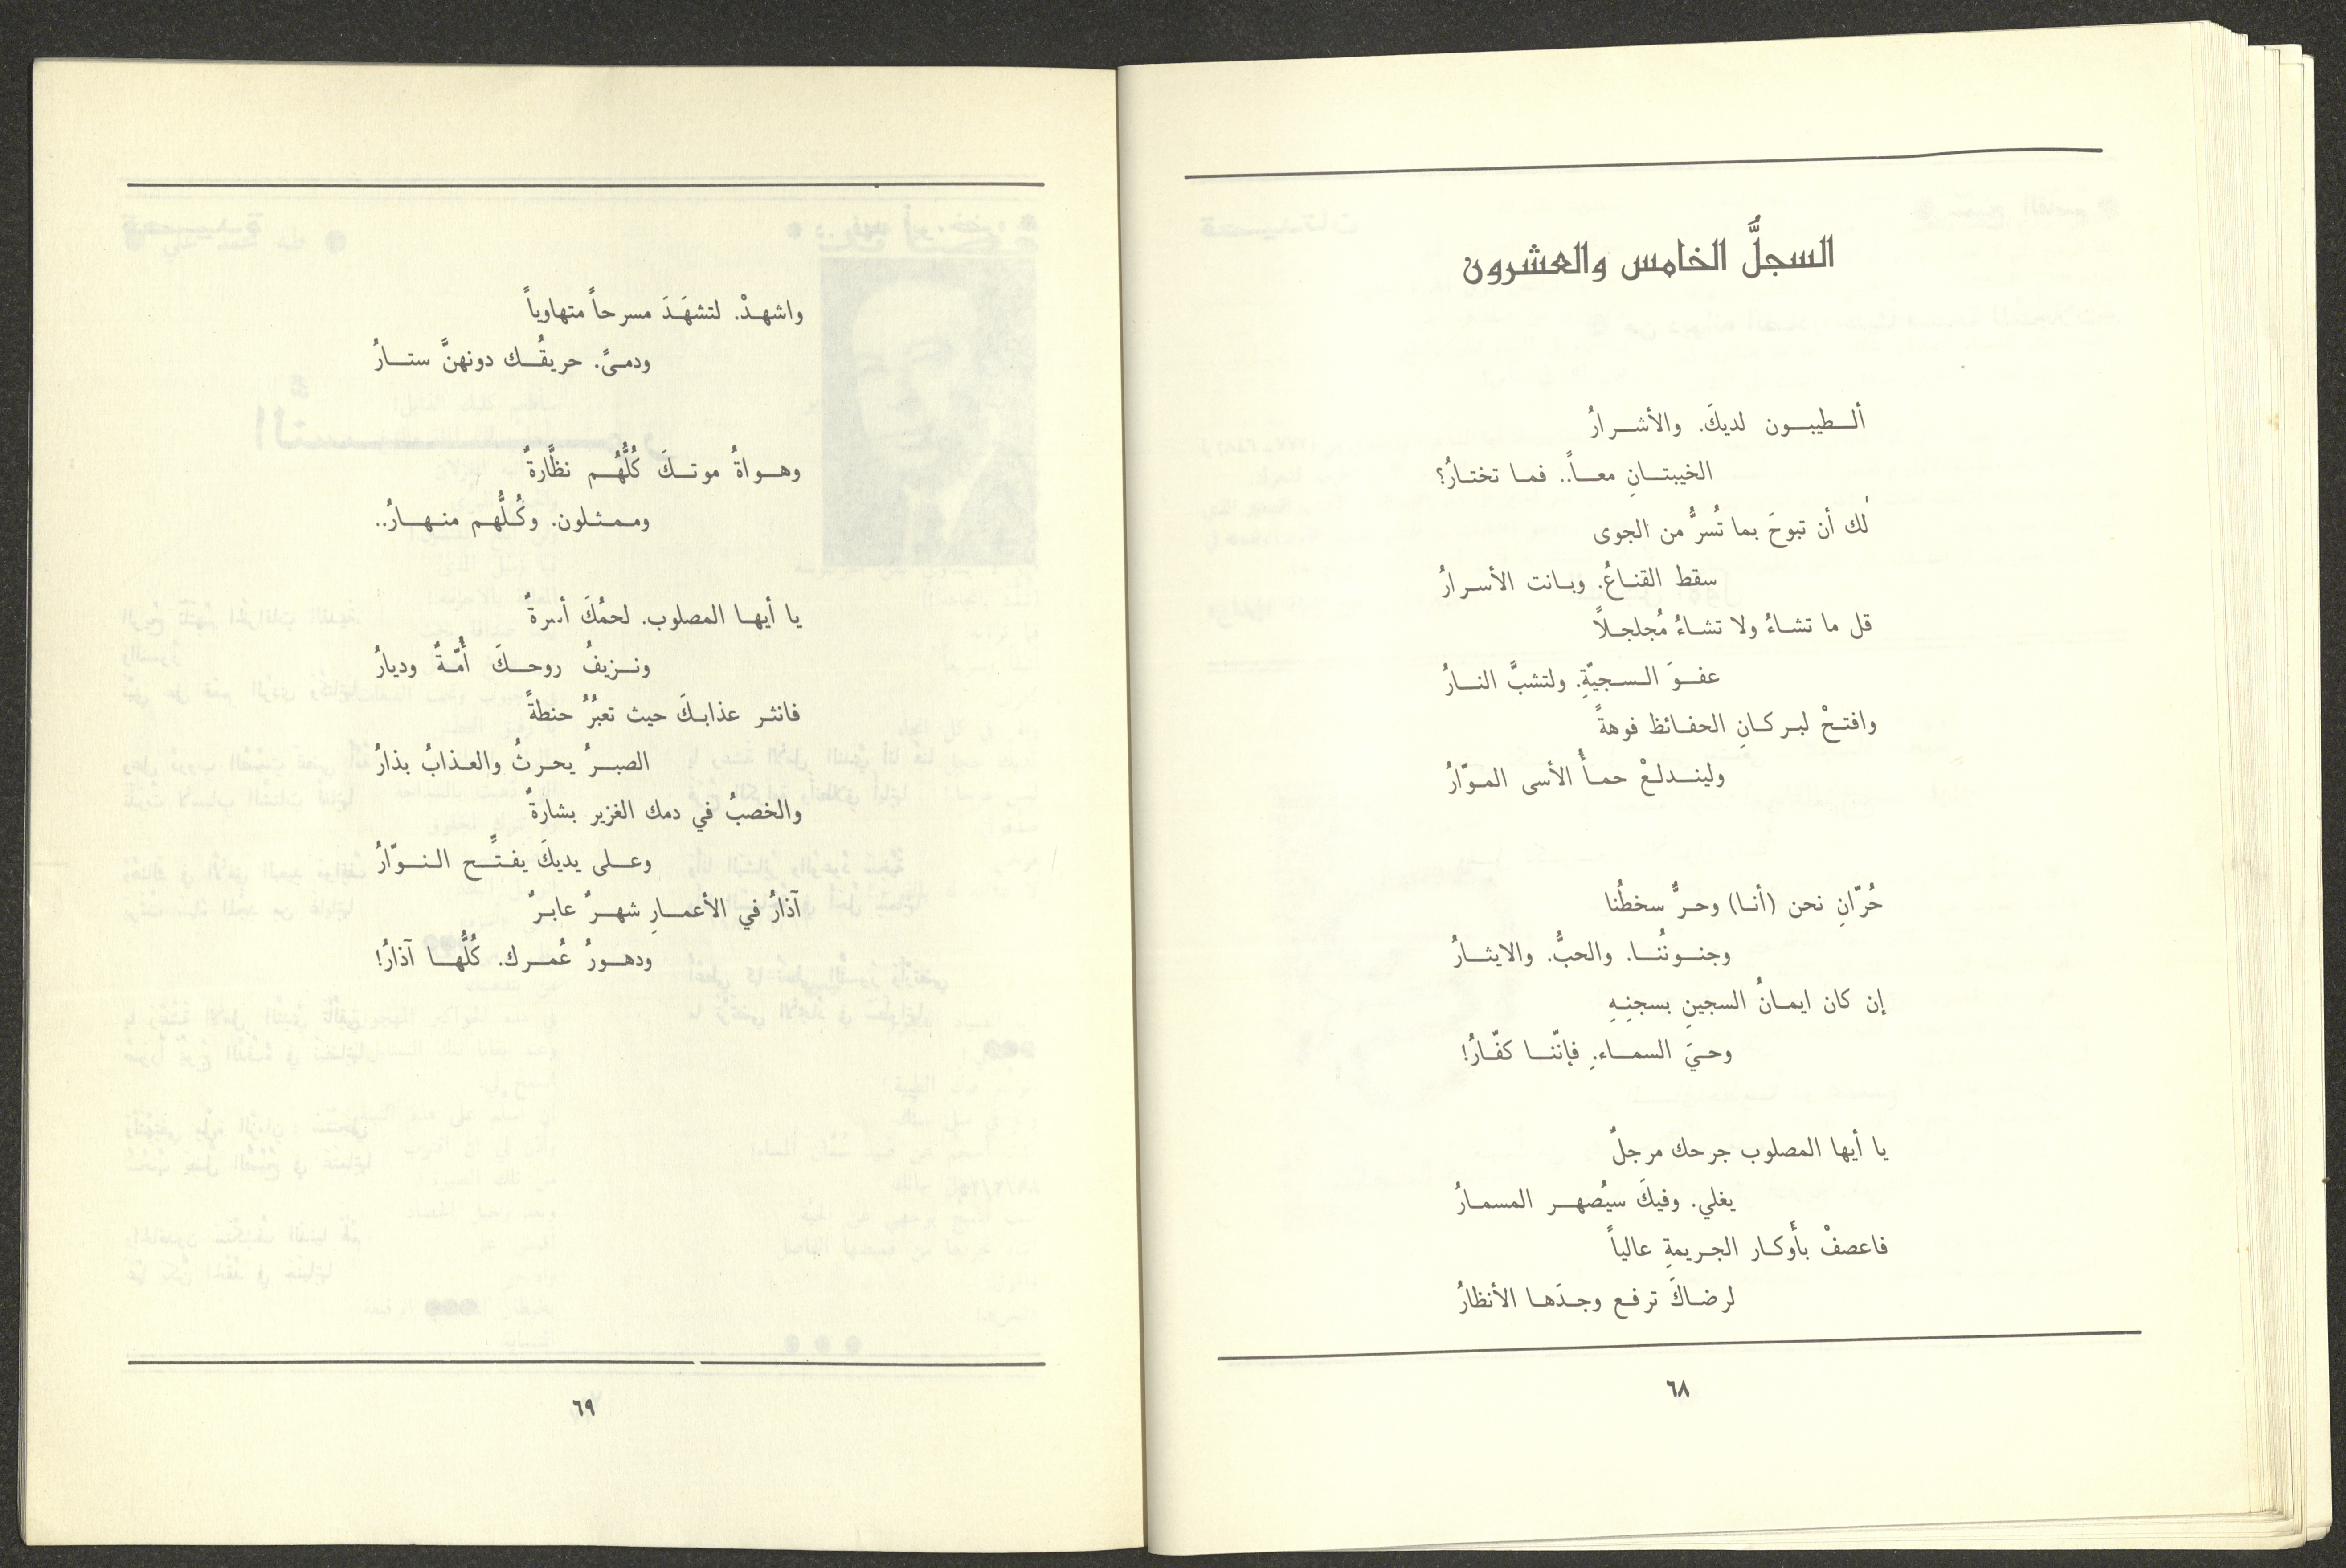 السجلَّ الخامس والعشرون
ألـطيبـون لديكَ. والأشـرارُ
الخيبتـانِ معـاً.. فمـا تختـارُ؟
لك أن تبوحَ بما تُسرُّ من الجوى
سقط القنـاعُ. وبـانت الأسـرارُ
قل ما تشـاءُ ولا تشـاءُ مُجلجـلاً
عفـوَ السـجيّةِ. ولتشبَّ النـارُ
وافتـحْ لبـركـانِ الحفـائظ فوهةً
ولينـدلـعْ حمـأُ الأسى المـوّارُ
حُرّانِ نحن (أنـا) وحـرٌّ سخطُنا
وجنـونُنـا. والحبُّ. والايثـارُ
إن كان ايمـانُ السجينِ بسجنِـهِ
وحـيَ السمـاء. فإنّنـا كفّـارُ!
يا أيها المصلوب جرحك مرجلٌ
يغلي. وفيكَ سيُصهـر المسمـارُ
فاعصفْ بأَوكـار الجـريمةِ عالياً
لرضـاكَ ترفـع وجـدَهـا الأنظارُ
٦٨
واشهـدْ. لتشهَـدَ مسرحاً متهاوياً
ودمـىً. حريقُـك دونهنَّ ستـارُ
وهـواةُ موتـكَ كُلُّهُـم نظَّارةٌ
وممـثـلون. وكُـلُّهـم منـهـارُ..
يا أيهـا المصلوب. لحمُكَ أسرةٌ
ونـزيفُ روحـكَ أُمّـةٌ وديارُ
فانثـر عذابـكَ حيث تعبُرُ حنطةً
الصبـرُ يحـرثُ والعـذابُ بذارُ
والخصبُ في دمك الغزير بشارةٌ
وعـلى يديكَ يفـتَّـح النـوّارُ
آذارُ في الأعمـارِ شهـرٌ عابـرٌ
ودهـورُ عُمـرك. كُلُّهـا آذارُ!
٦٩